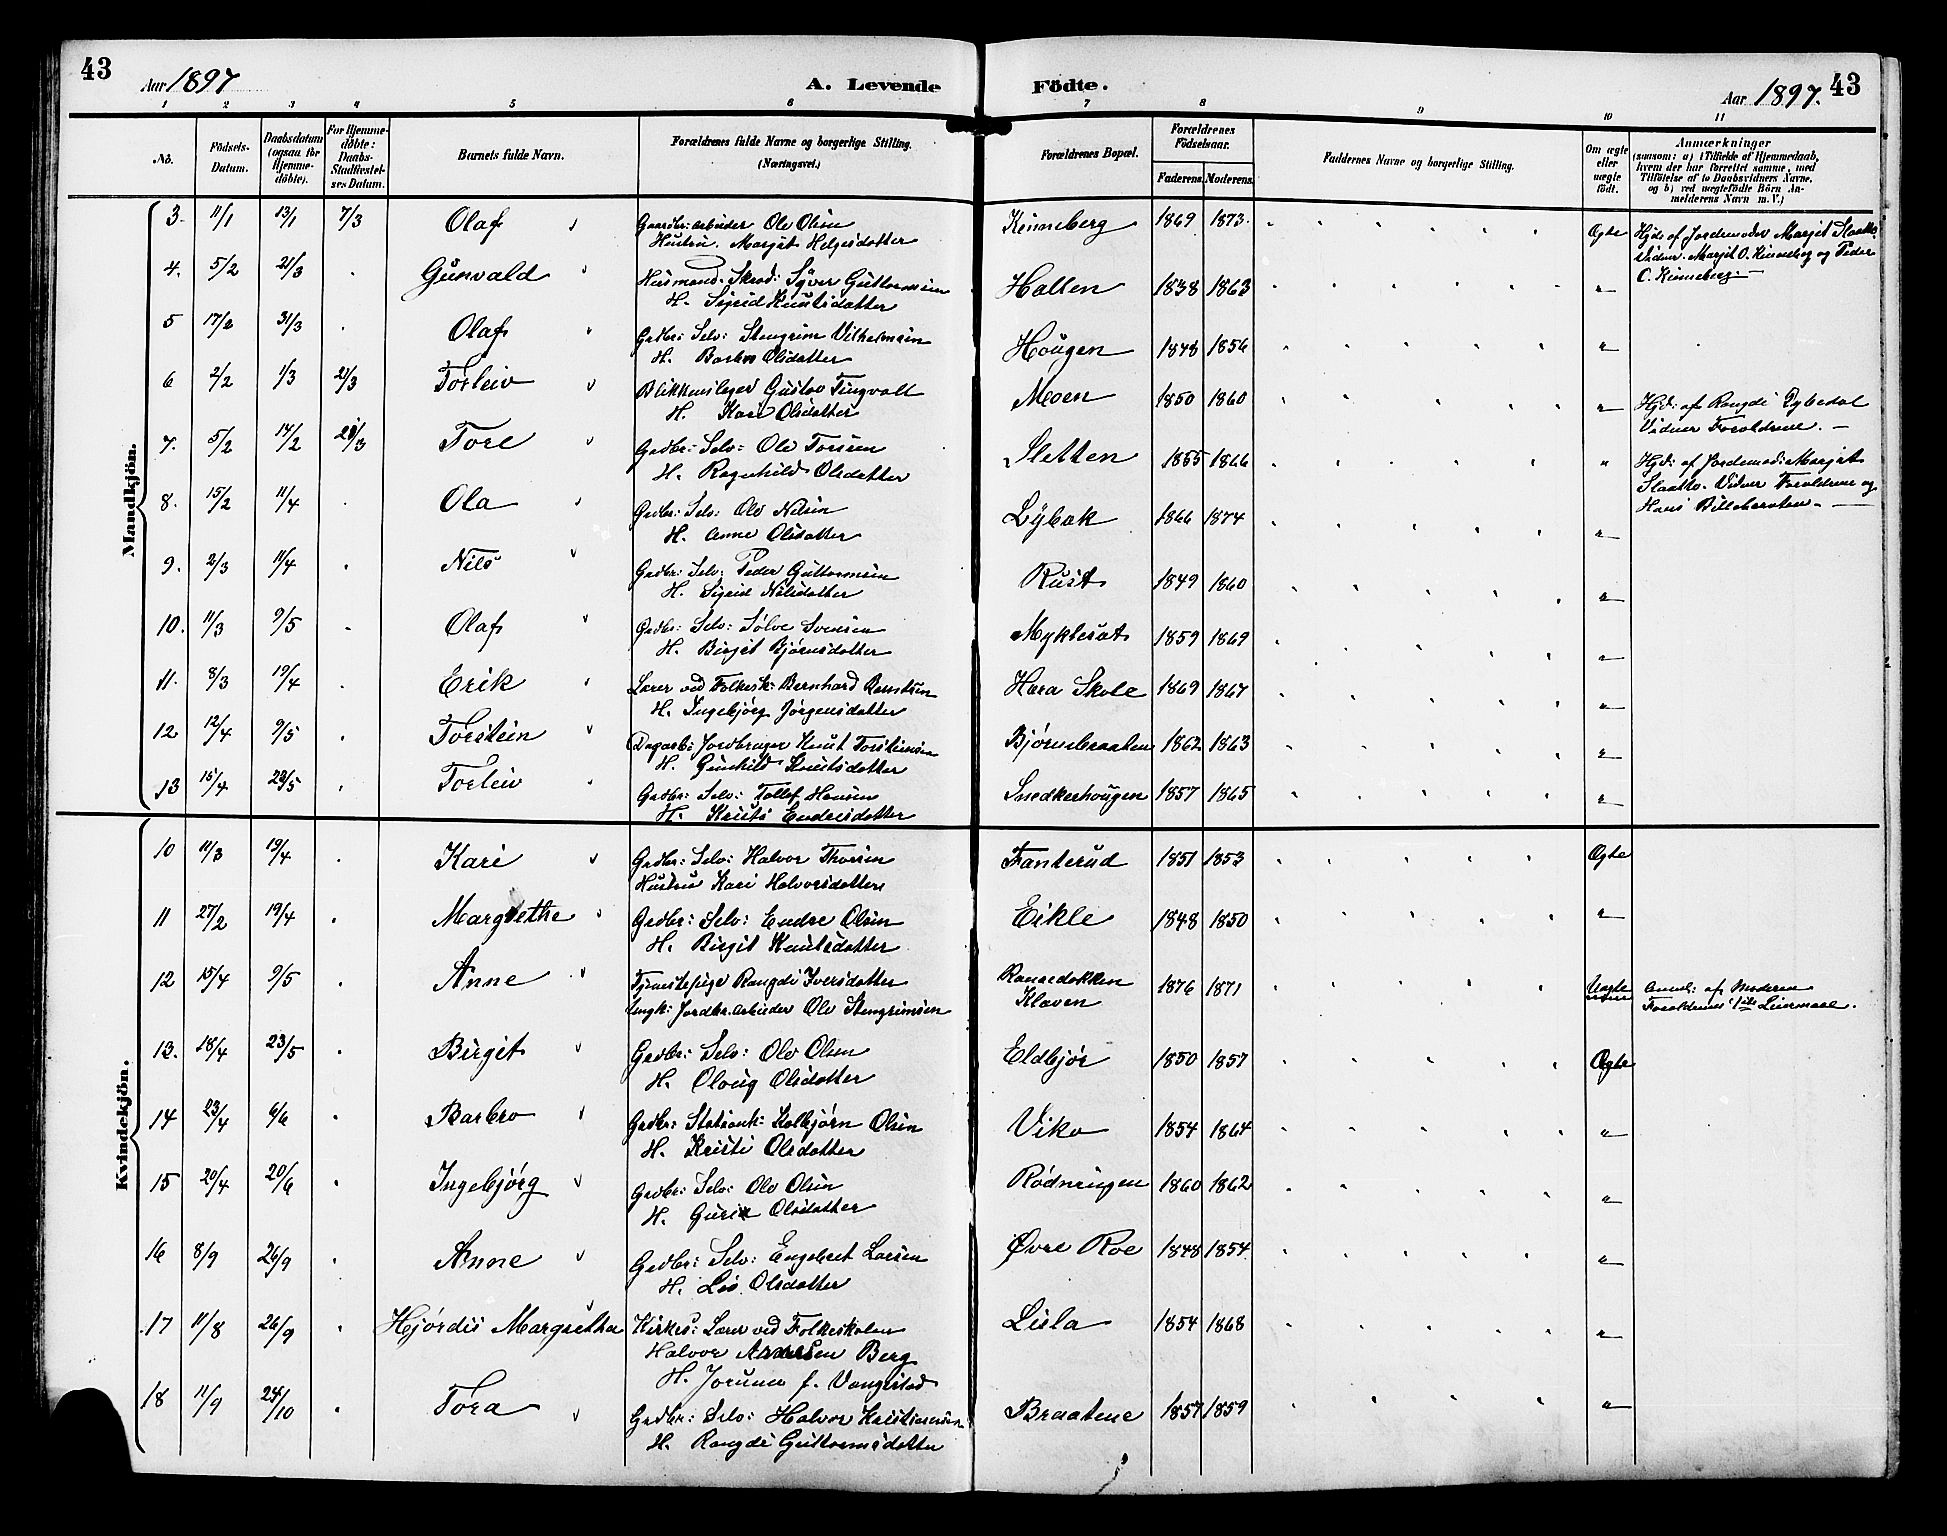 43
Aar 1897
A. Levende
Födte.
Aar 1897.
43
1 2 3 4 5 6 7 8 9 10 11
No.
Födsels-Datum.
Daabsdatum (ogsaa for Hjemme-döbte).
For Hjemme-döbte: Daabs-Stadfæstel-ses Datum.
Barnets fulde Navn.
Forældrenes fulde Navne og borgerlige Stilling. (Næringsvei.)
Forældrenes Bopæl.
Forældrenes Födselsaar.
Faderens. Moderens.
Faddernes Navne og borgerlige Stilling.
Om ægte eller uægte födt.
Anmærkninger
(saasom: a) i Tilfælde af Hjemmedaab,
hvem der har forrettet samme, med
Tilföielse af to Daabsvidners Navne,
og b) ved uægtefödte Börn An-
melderens Navn m. V.)
Mandkjön.
3. 11/1 13/1 7/3 Olaf Gaardbr: arbeider Ole Olsen Kinneberg 1869 1873 Ægte Hjdt af Jordemoder Margit Slaatto
Hustru Margit Helgesdatter Vidner Margit O. Kinneberg og Peder
O. Kinneberg.
4. 5/2 21/3 Gunvald Husmand Skræd: Syver Guttormsen Hallen 1838 1863 "
H. Sigrid Knutsdatter
5 17/2 31/3 Olaf Grdbr: Selv: Stengrim Vilhelmsen Hougen 1848 1856 "
H. Barbro Olsdatter
6 2/2 1/3 21/3 Torleiv Blikkenslager Gustav Tingvalt Moen 1850 1860 " Hjd: af Rangdi Dybedal
H. Kari Olsdatter Vidner Forældrene.
7. 5/2 14/2 28/3 Tore Grdbr: Selv: Ole Torsen Sletten 1855 1866 " Hjd: af Jordemod: Margit
H. Ragnhild Olsdatter Slaatto. Vidner Forældrene og
8. 15/2 11/4 Ola Grdbr: Selv: Ole Nilsen Lybæk 1866 1874 "
H. Anne Olsdatter
9. 2/3 11/4 Nils Grdbr: Selv: Peder Guttormsen Rust 1849 1860 "
H. Sigrid Nilsdatter
10. 11/3 9/5 Olaf Grdbr: Selv: Sølve Svensen Myklesat 1859 1869 "
H. Birgit Bjørnsdatter
11. 8/3 19/4 Erik Lærer ved Folkesk: Bernhard Berntsen Hara Skole 1869 1867 "
H. Ingebjørg Jørgensdatter
12 12/4 9/5 Torstein Dagarb: Jordbruger Knut Torsteinsen Bjørnebraaten 1862 1863 "
H. Gunhild Knutsdatter
13 15/4 23/5 Torleiv Grdbr: Selv: Tollef Hansen Snedkerhougen 1857 1865 "
H. Kristi Endresdatter
Kvindekjön.
10 11/3 19/4 Kari Grdbr: Selv: Halvor Thorsen Fanterud 1851 1853 Ægte
Hustru Kari Halvorsdatter
11 27/2 19/4 Margrethe Grdbr: Selv: Endre Olsen Eikle 1848 1850 "
H. Birgit Knutsdatter
12 15/4 9/5 Anne Tjenestepige Rangdi Iversdatter 1876 1871 Uægte Anml: af Moderen
Ungk: Jordbr. arbeider Ole Stengrimsen Klaven Forældrenes 1ste Leiermaal.
13. 18/4 23/5 Birgit Grdbr: Selv: Ole Olsen Eldbjør 1850 1857 Ægte
H. Oloug Olsdatter
14 23/4 6/6 Barbro Grdbr: Kolbjørn Olsen Viko 1854 1864 "
H. Kristi Olsdatter
15 20/4 20/6 Ingebjørg Grdbr: Selv: Ole Olsen Rødningen 1860 1862 "
H. Guri Olsdatter
16 8/9 26/9 Anne Grdbr: Selv: Engebret Larsen Øvre Roe 1848 1854 "
H. Liv Olsdatter
17 11/8 26/9 Hjørdis Margretha Kirkes: Lærer ved Folkeskolen Lisla 1854 1868 "
Halvor Andersen Berg
H. Jorunn f. Vangestad
18 11/9 24/10 Tora Grdbr: Selv: Halvor Kristiansen Braatene 1857 1859 "
H. Rangdi Guttormsdatter